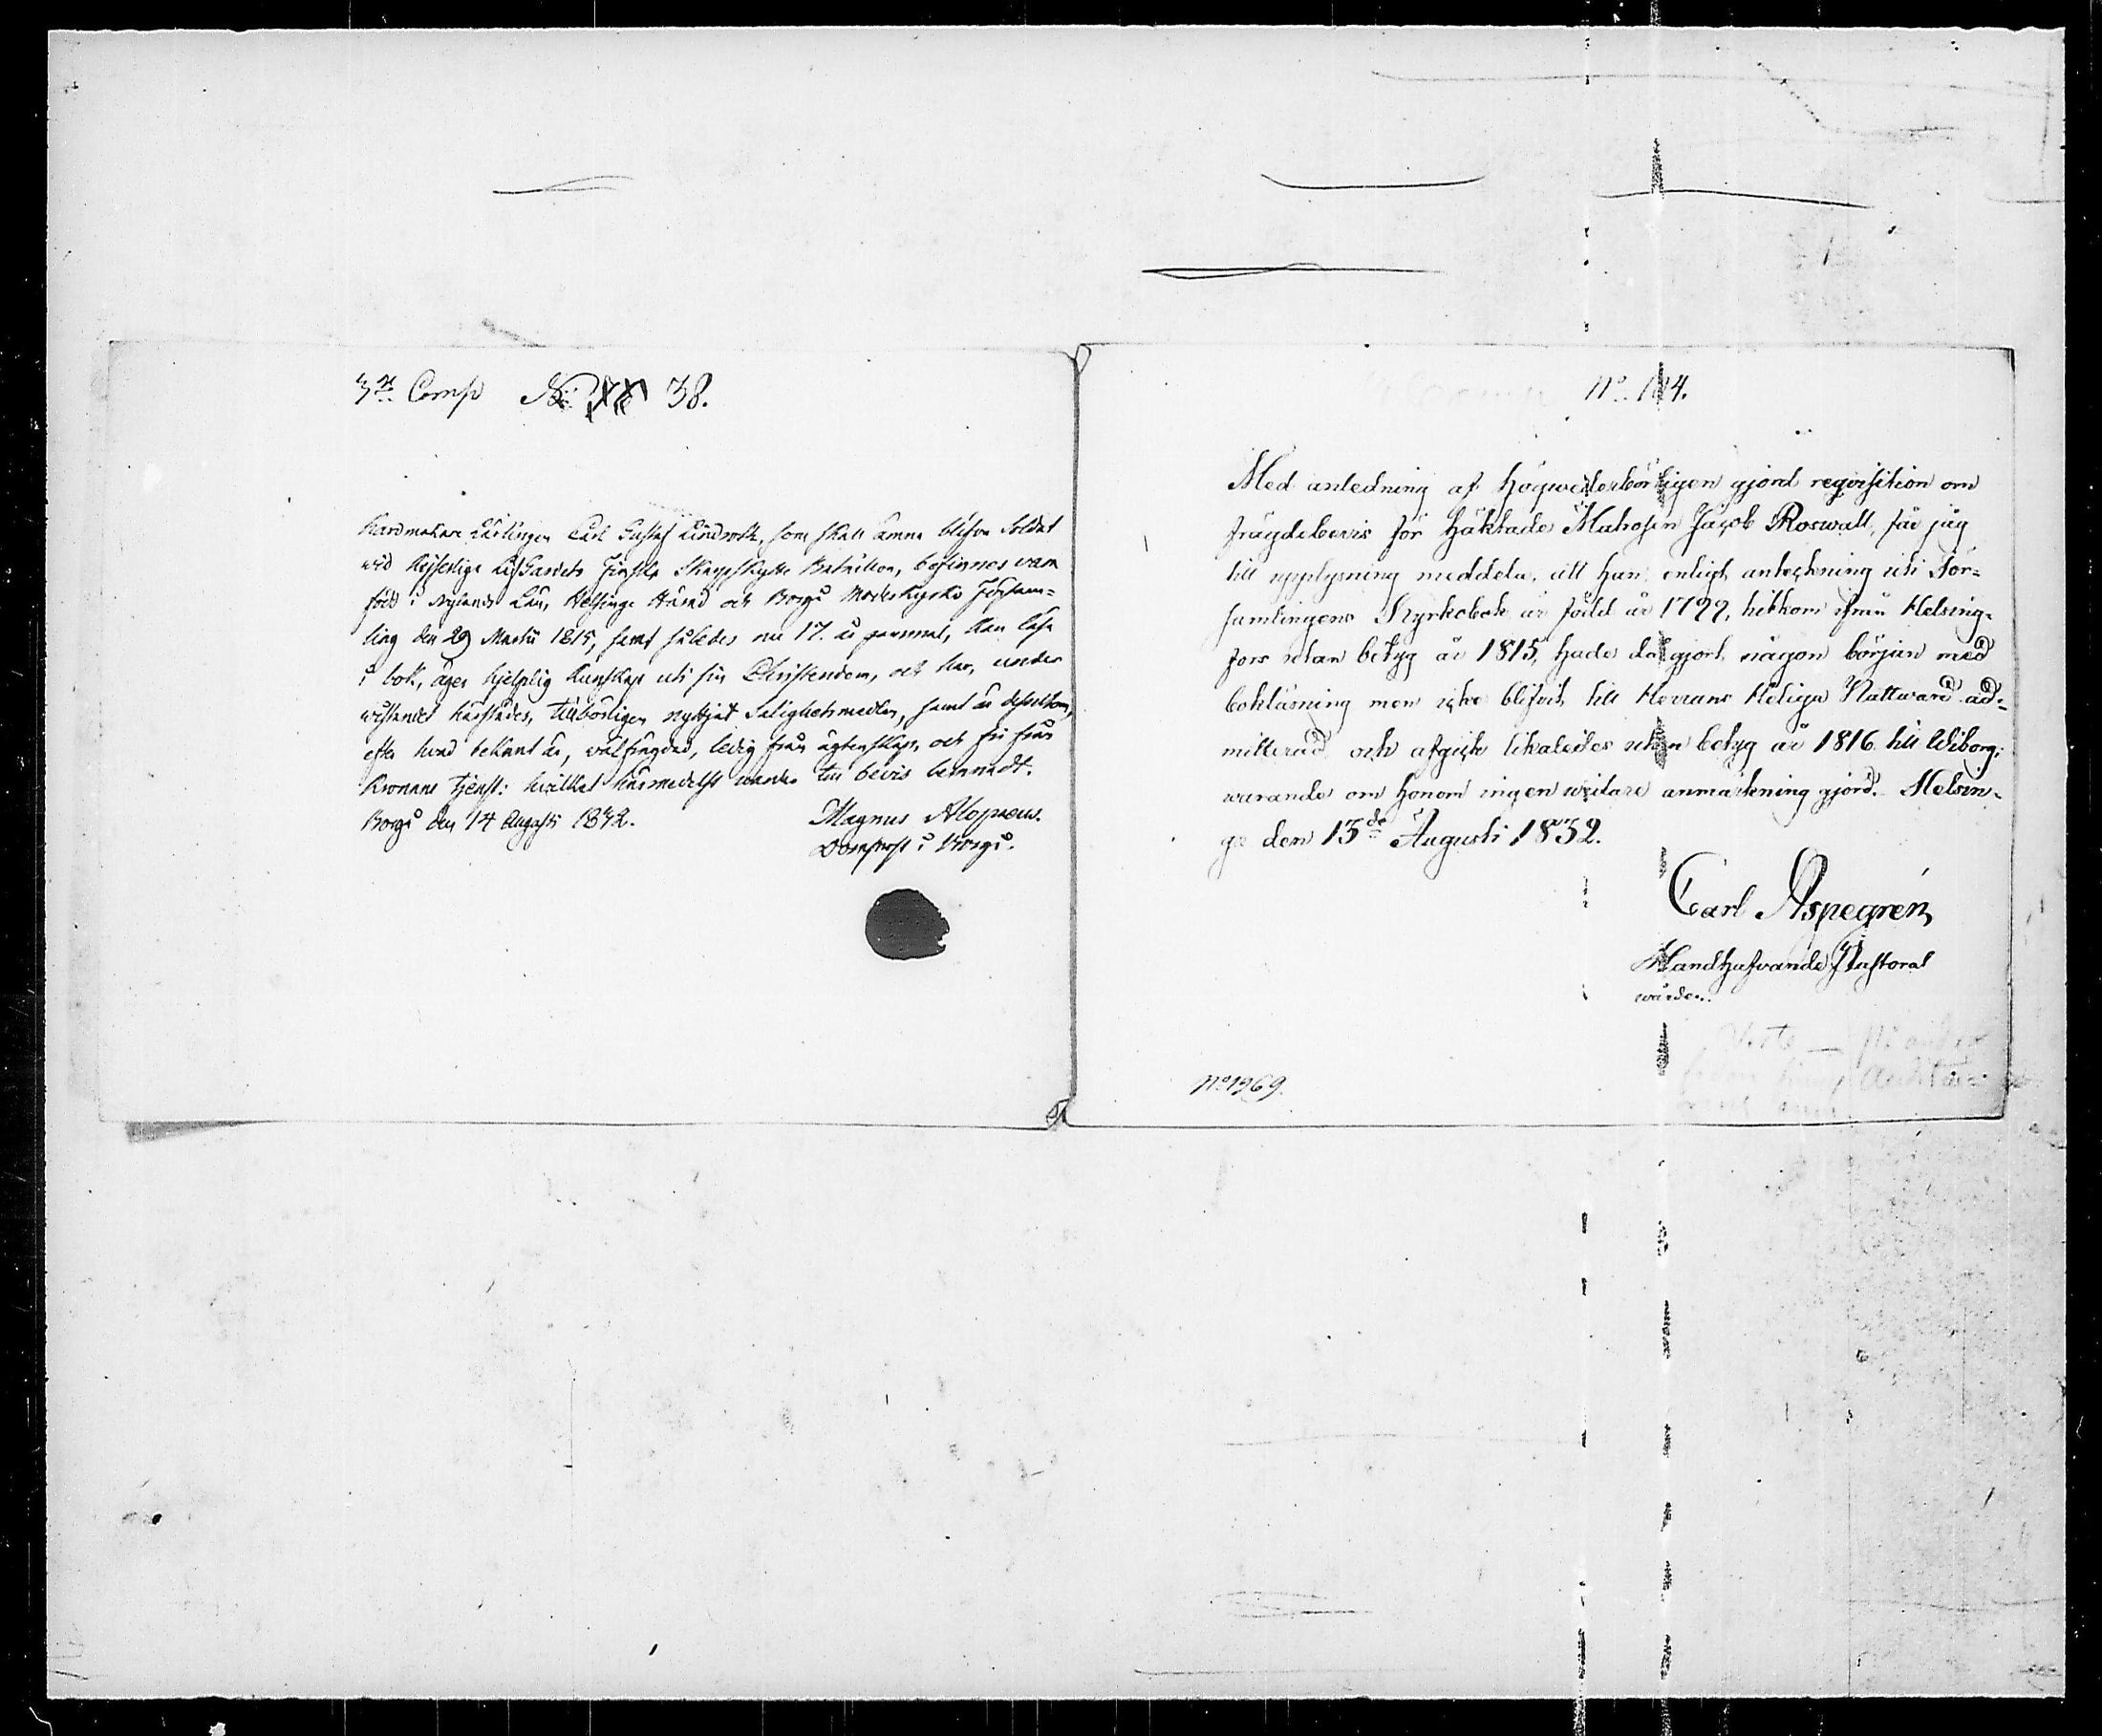 3:ne Comp No 38.
Kardmakare Lärlingen Carl Gustaf Lindroth, som skall ämna blifva Soldat
wid Kejserliga LifGardets Finska Skarpskytte Bataillon, befinnes vara
född i Nylands Län, Helsinge Härad och Borgå Moderkyrko Församling
ling den 29 Martii 1815, samt således nu 17. år gammal, kan läsa
i bok, äger hjelplig kunskap uti sin Christendom, och har, under
wistandet härstädes, tillbörligen nyttjat Salighetsmedlen, samt är dessutom,
efter hvad bekant är, välfrägdad, ledig från ägtenskap, och fri från
Kronans tjenst: hvilket härmedelst wanligen till bevis lemnadt.
Borgå den 14 Augusti 1832.
Magnus Alopaeus.
Domprost i Borgå.
No. 184.
Med anledning af Högwederbörligen gjord requisition om
frägdebevis för häktade Matrosen Jacob Roswall, får jag
till upplysning meddela, att han enligt anteckning uti För-
samlingens Kyrkobok är född år 1799, hitkom från Helsing-
fors utan betyg år 1815, hade då gjort någon början med
bokläsning men icke blifvit till Herrans Heliga Nattward ad-
mitterad och afgick likaledes utan betyg år 1816 till Wiborg;
warande om honom ingen widare anmärkning gjord. Helsin-
ge den 13de Augusti 1832.
Carl Aspegren,
Handhafvande Pastoral
wården.
No 1269.